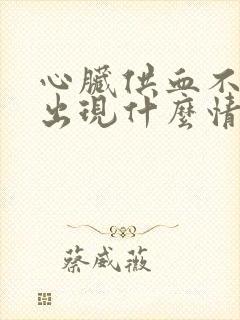 心臟供血不
出現什麼情
蔡威薇